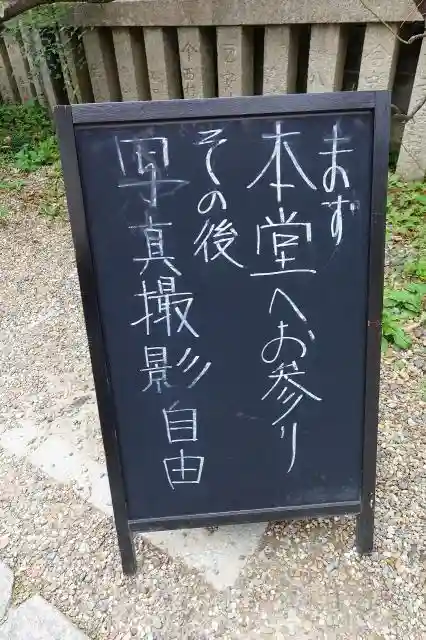 まず
本堂へお参り
その後
写真撮影自由